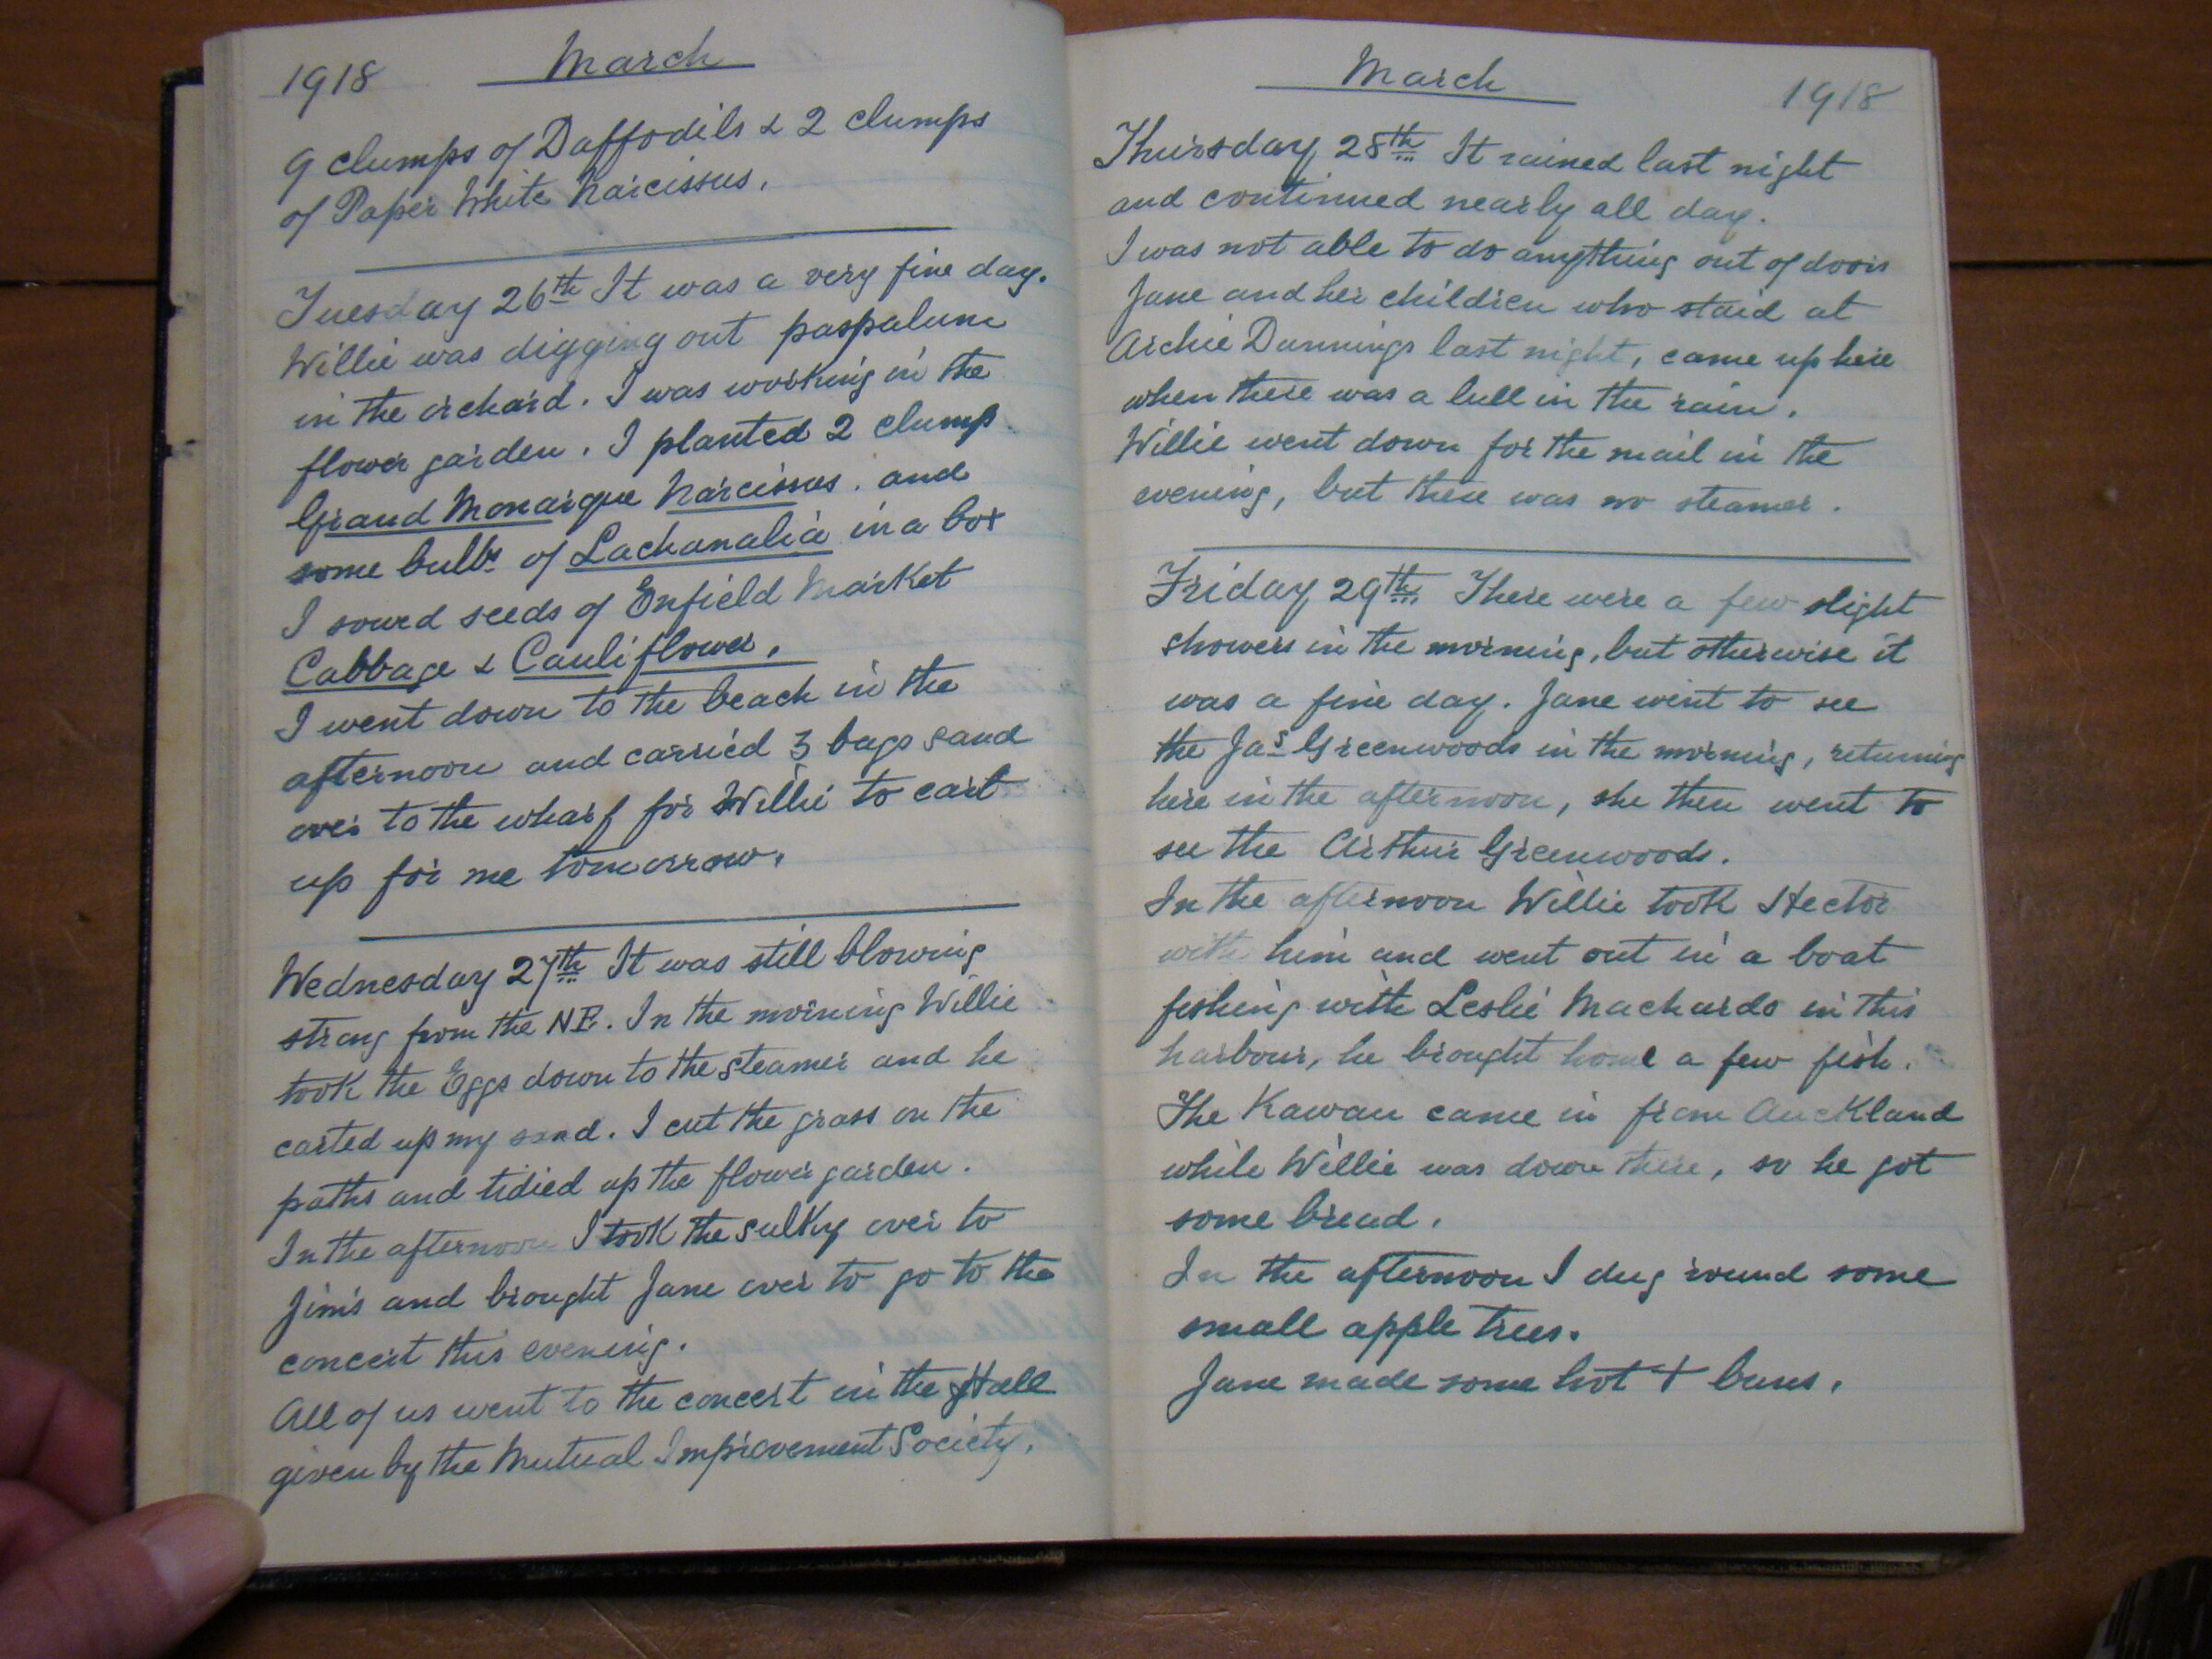 1918 March
9 clumps of Daffodils & 2 clumps
of Paper White Narcissus.
Tuesday 26th It was a very fine day.
Willie was digging out paspalum
in the orchard. I was working in the
flower garden. I planted 2 clump
Grand Monarque Narcissus. and
some bulbs of Lachanalia in a box
I sowed seeds of Enfield Market
Cabbage & Cauliflower.
I went down to the beach in the
afternoon and carried 3 bags sand
over to the wharf for Willie to cart
up for me tomorrow.
Wednesday 27th It was still blowing
strong from the NE. In the morning Willie
took the Eggs down to the steamer and he
carted up my sand. I cut the grass on the
paths and tidied up the flower garden.
In the afternoon I took the sulky over to
Jim's and brought Jane over to go to the
concert this evening.
All of us went to the concert in the Hall
given by the Mutual Improvement Society.
March 1918
Thursday 28th It rained last night
and continued nearly all day.
I was not able to do anything out of doors
Jane and her children who staid at
Archie Dunnings last night, came up here
when there was a lull in the rain.
Willie went down for the mail in the
evening, but there was no steamer.
Friday 29th. There were a few slight
showers in the morning, but otherwise it
was a fine day. Jane went to see
the Jas Greenwoods in the morning, returning
here in the afternoon, she then went to
see the Arthur Greenwoods.
In the afternoon Willie took Hector
with him and went out in a boat
fishing with Leslie Machardo in this
harbour, he brought home a few fish.
The Kawau came in from Auckland
while Willie was down there, so he got
some bread.
In the afternoon I dug round some
small apple trees.
Jane made some hot + buns.